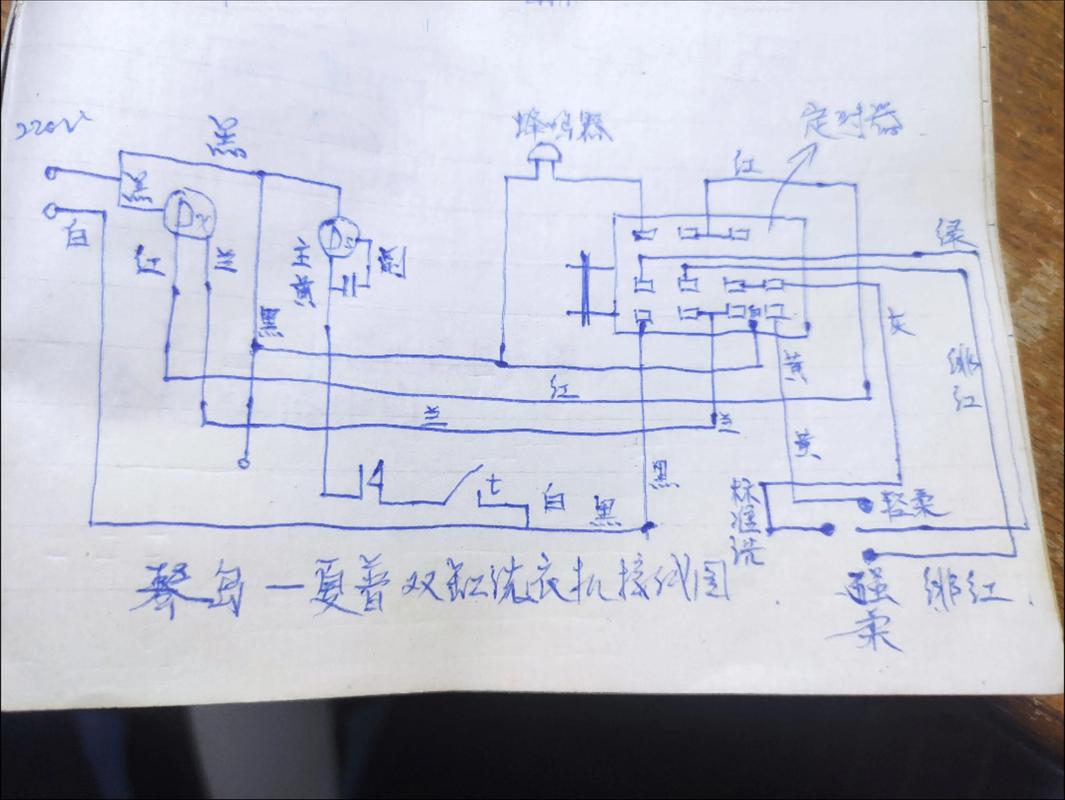 220V
蜂鸣器
定时器
黑
红
黑
白
D
绿
红
兰
黄
黑
灰
黄
绯红
红
兰
兰
黄
黑
t
白
黑
标准洗
轻柔
琴岛一夏普双缸洗衣机接线图
强柔
绯红